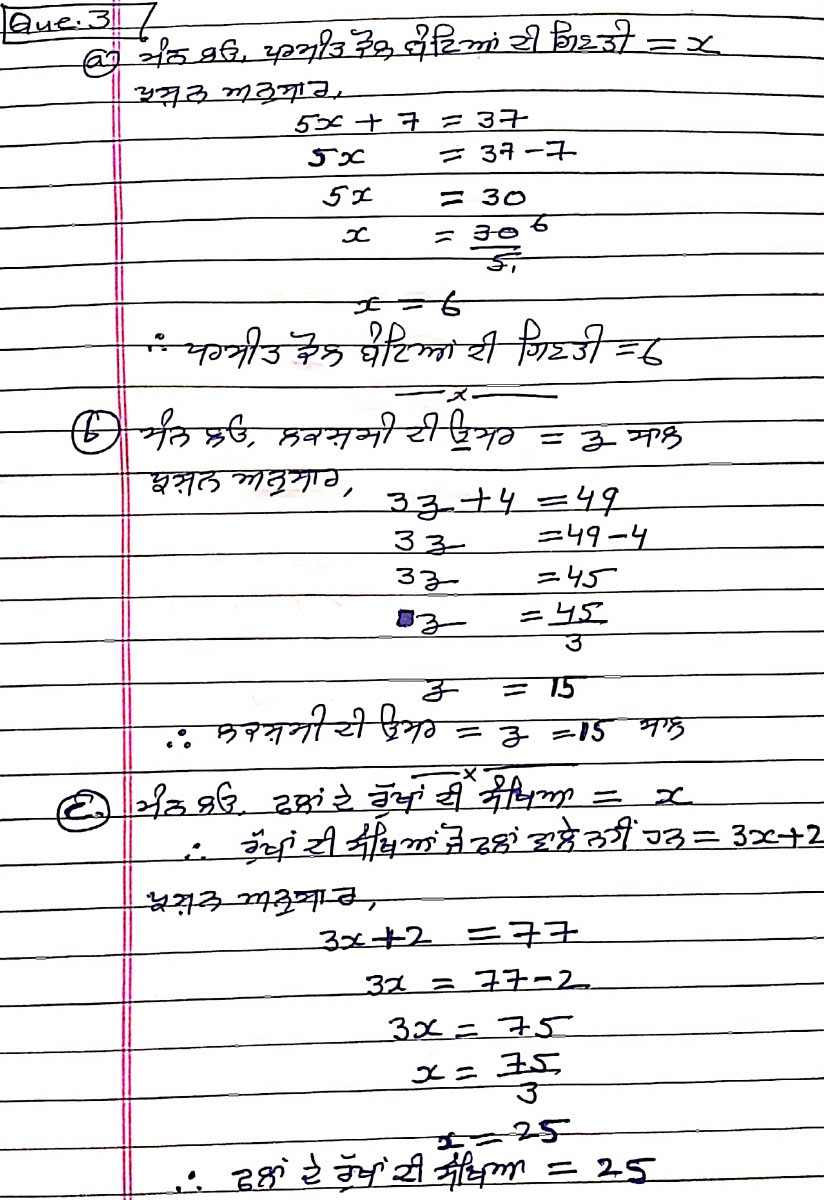 Que. 3
(a) ਮੰਨ ਲਓ, ਪਰਮੀਤ ਕੋਲ ਬੰਟਿਆਂ ਦੀ ਗਿਣਤੀ = x
ਪ੍ਰਸ਼ਨ ਅਨੁਸਾਰ,
5x + 7 = 37
5x = 37 - 7
5x = 30
x = 30/5 6 1
x = 6
∴ ਪਰਮੀਤ ਕੋਲ ਬੰਟਿਆਂ ਦੀ ਗਿਣਤੀ = 6
— x —
(b) ਮੰਨ ਲਓ, ਲਕਸ਼ਮੀ ਦੀ ਉਮਰ = z ਸਾਲ
ਪ੍ਰਸ਼ਨ ਅਨੁਸਾਰ,
3z + 4 = 49
3z = 49 - 4
3z = 45
z = 45/3
z = 15
∴ ਲਕਸ਼ਮੀ ਦੀ ਉਮਰ = z = 15 ਸਾਲ
— x —
(c) ਮੰਨ ਲਓ, ਫਲਾਂ ਦੇ ਰੁੱਖਾਂ ਦੀ ਸੰਖਿਆ = x
∴ ਰੁੱਖਾਂ ਦੀ ਸੰਖਿਆਂ ਜੋ ਫਲਾਂ ਵਾਲੇ ਨਹੀਂ ਹਨ = 3x+2
ਪ੍ਰਸ਼ਨ ਅਨੁਸਾਰ,
3x+2 = 77
3x = 77 - 2
3x = 75
x = 75/3
x = 25
∴ ਫਲਾਂ ਦੇ ਰੁੱਖਾਂ ਦੀ ਸੰਖਿਆ = 25